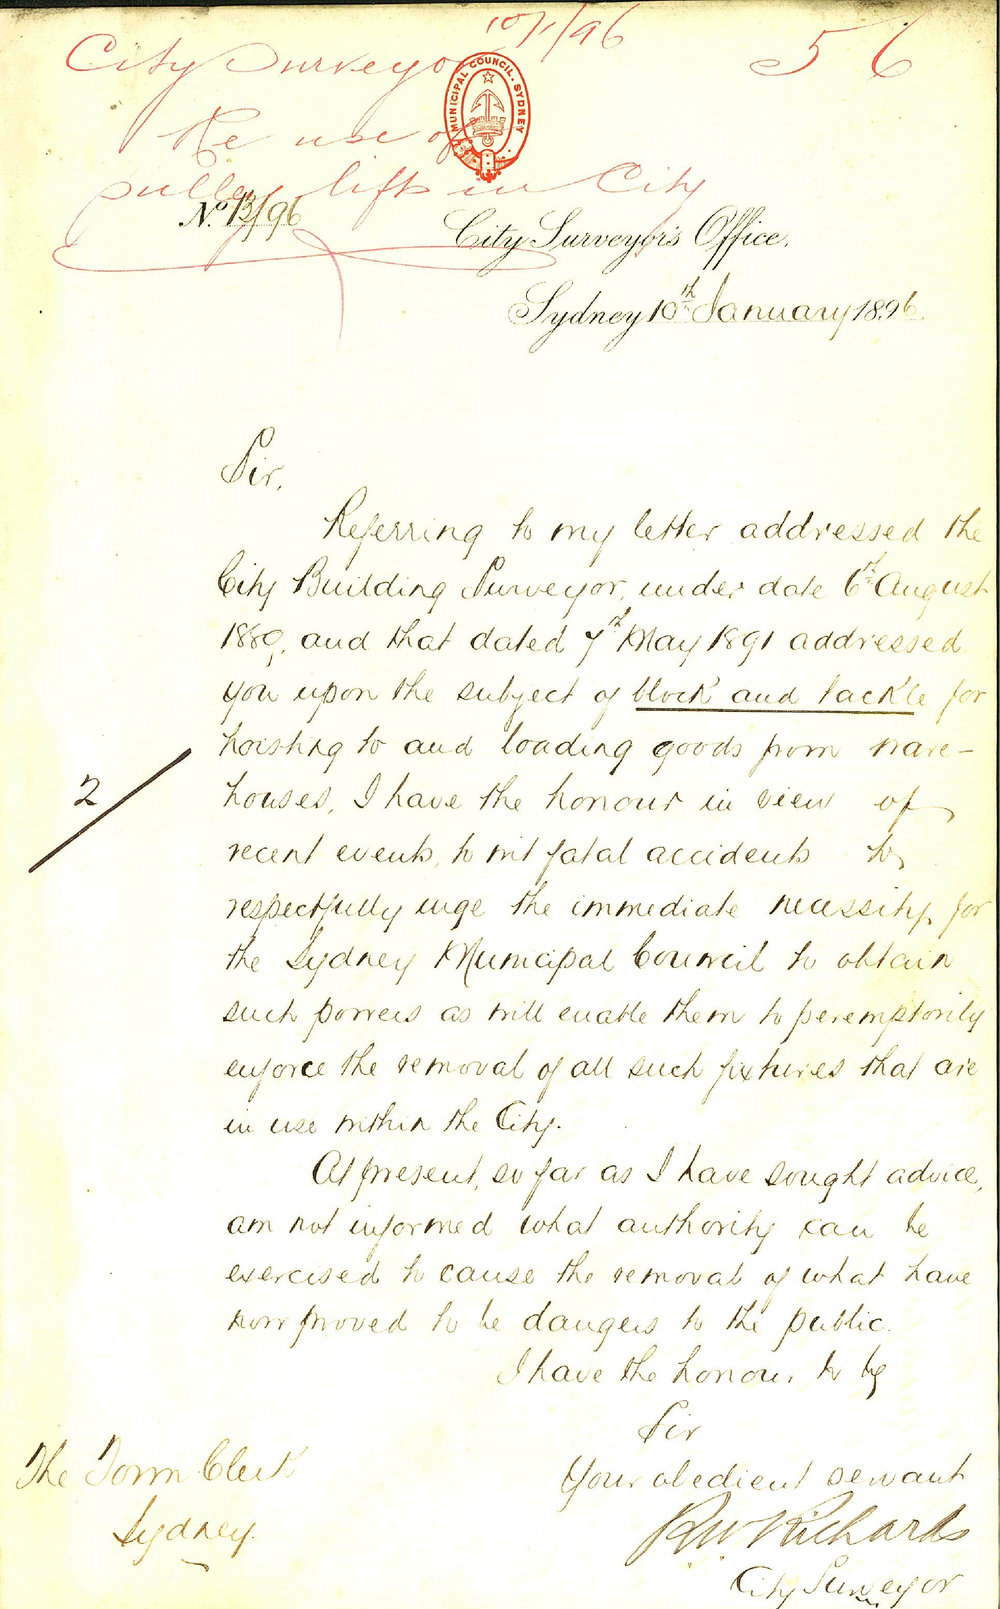 10/1/96
56
City Surveyor
MUNICIPAL COUNCIL. SYDNEY
Re use of
pulley lifts in City
No. 13/96
City Surveyor's Office.
Sydney 10th January 1896.
Sir,
Referring to my letter addressed the
City Building Surveyor, under date 6th August
1880, and that dated 7th May 1891 addressed
you upon the subject of block and tackle for
hoisting to and loading goods from ware-
houses, I have the honour in view of
2/
recent events, to wit fatal accidents to
respectfully urge the immediate necessity for
the Sydney Municipal Council to obtain
such powers as will enable them to peremptorily
enforce the removal of all such fixtures that are
in use within the City.
At present, so far as I have sought advice,
am not informed what authority can be
exercised to cause the removal of what have
now proved to be dangers to the public.
I have the honour to be
Sir
Your obedient servant
R W Richards
City Surveyor
The Town Clerk
Sydney.